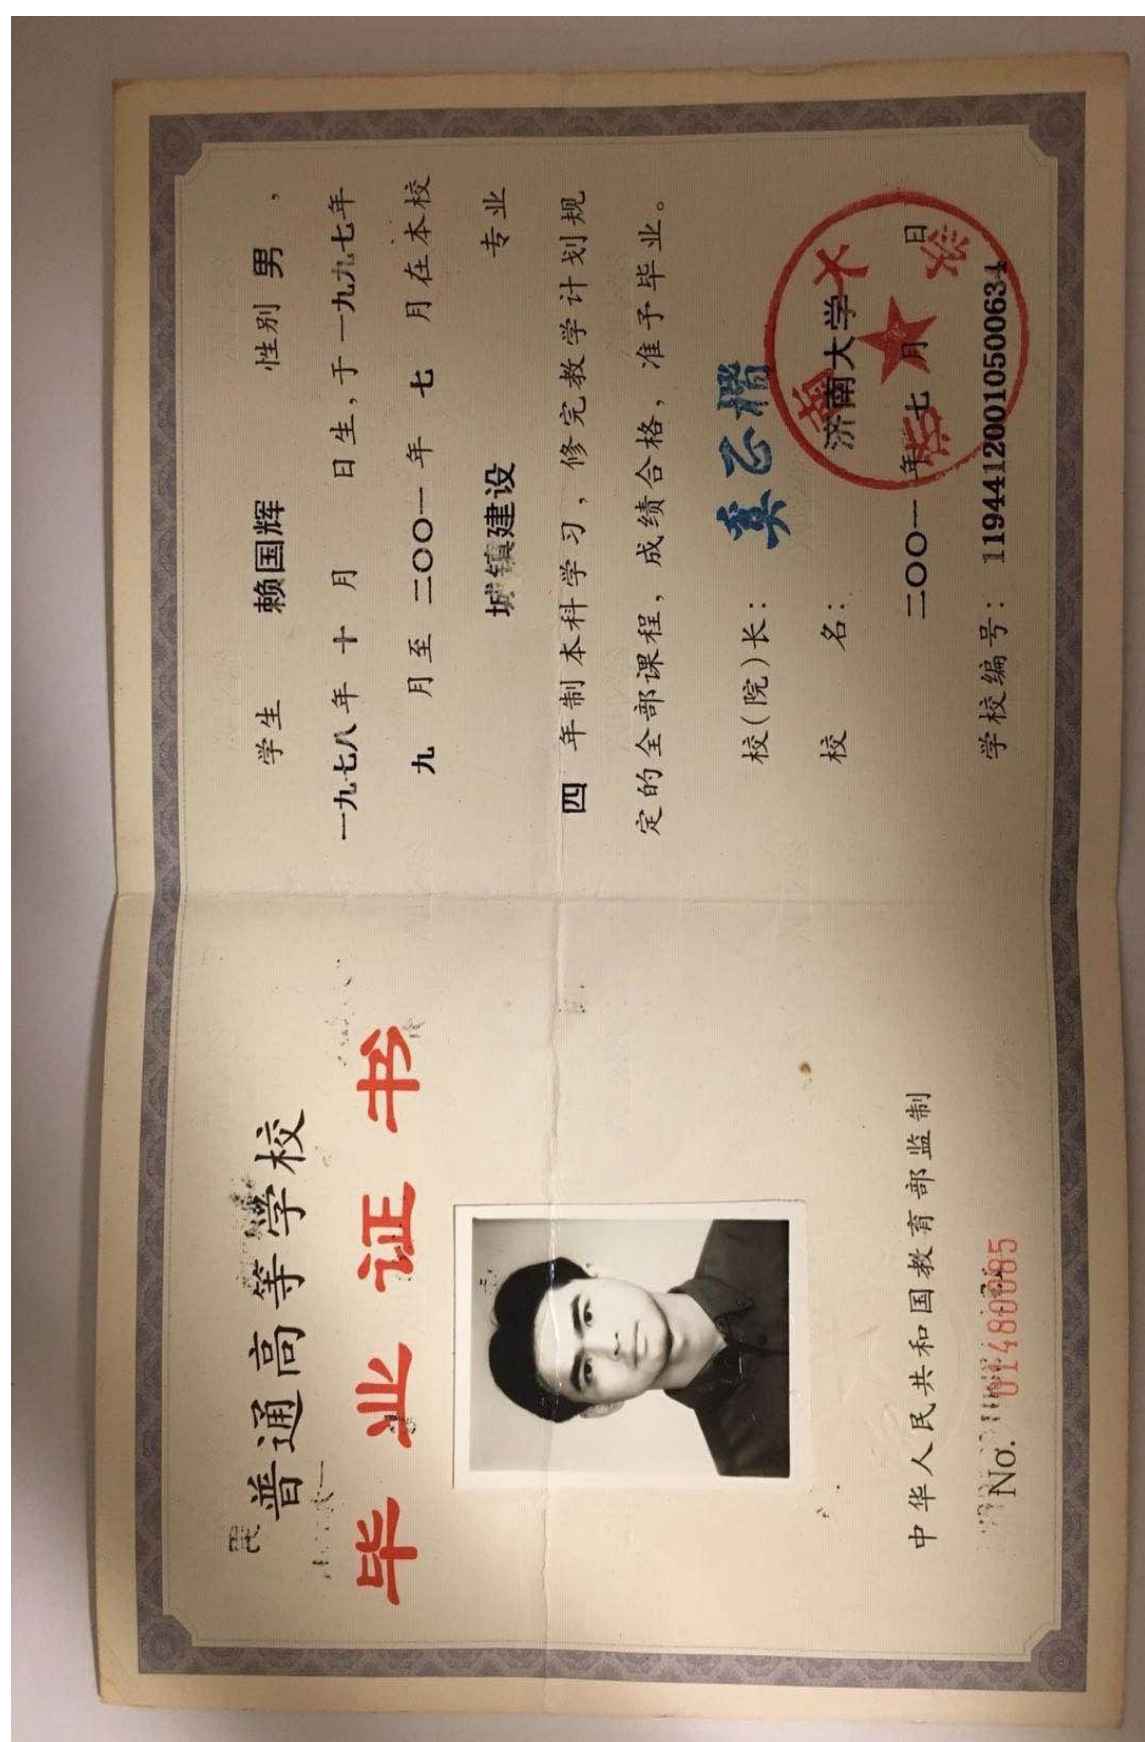 普通高等学校
毕业证书
中华人民共和国教育部监制
No. 01480085
学生 赖国辉 性别 男 ，
一九七八年 十 月 日生，于一九九七年
九 月至 二〇〇一 年 七 月在本校
城镇建设 专业
四 年制本科学习，修完教学计划规
定的全部课程，成绩合格，准予毕业。
校(院)长：
校 名： 济南大学
二〇〇一 年 七 月 日
学校编号： 11944120010500634